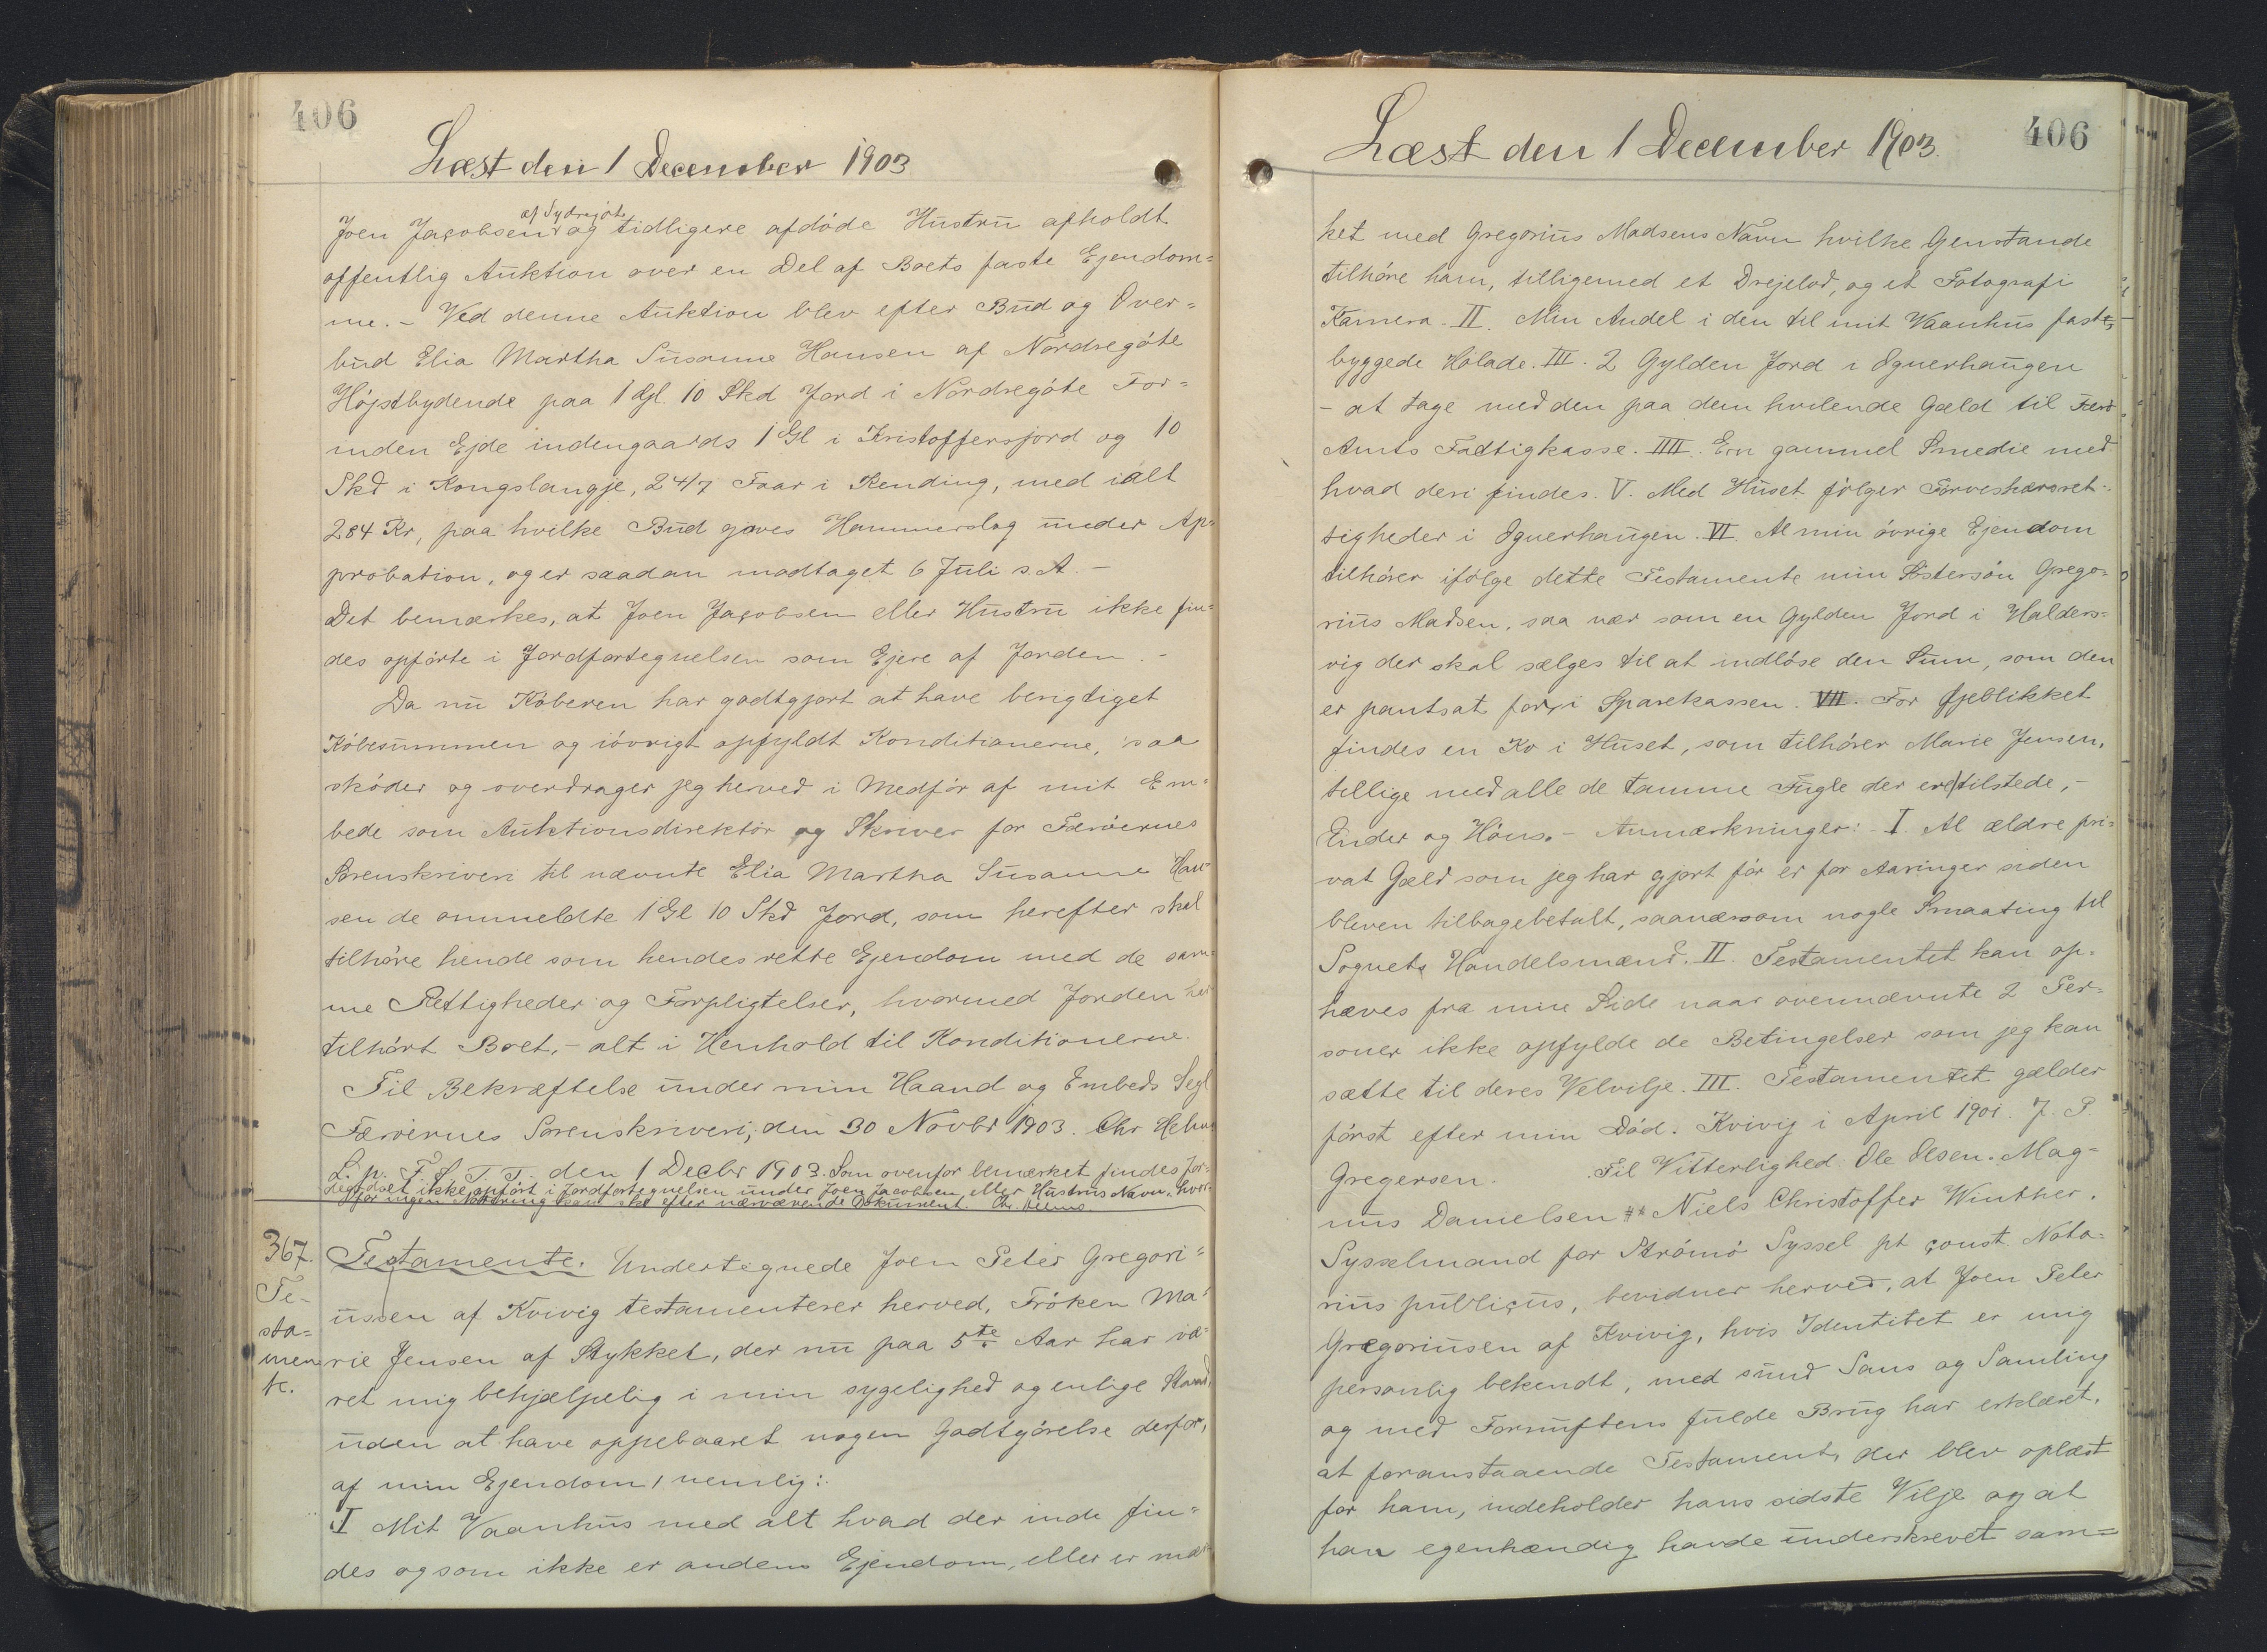 406
Læst den 1 December 1903
af Sydregöte
Joen Jacobsen og tidligere afdöde Hustru afholdt
offentlig Auktion over en Del af Boets faste Ejendom=
me. - Ved denne Auktion blev efter Bud og Over=
bud Elia Martha Susanne Hansen af Nordregöte
Höjstbydende paa 1 Gl. 10 Skd Jord i Nordregöte For=
inden Ejde indengaards 1 Gl i Kristoffersjord og 10
Skd i Kongslangje, 2 4/7 Faar i Kending, med ialt
284 Kr, paa hvilke Bud gaves Hammerslag under Ap=
probation, og er saadan modtaget 6 Juli s. A. -
Det bemærkes, at Joen Jacobsen eller Hustru ikke fin=
des opförte i Jordfortegnelsen som Ejere af Jorden. -
Da nu Köberen har godtgjort at have berigtiget
Köbesummen og iövrigt opfyldt Konditionerne, saa
sköder og overdrager jeg herved i Medför af mit Em=
bede som Auktionsdirektör og Skriver for Færöernes
Sorenskriveri til nævnte Elia Martha Susanne Han=
sen de ommeldte 1 Gl 10 Skd Jord, som herefter skal
tilhöre hende som hendes rette Ejendom med de sam=
me Rettigheder og Forpligtelser, hvormed Jorden har
tilhört Boet, - alt i Henhold til Konditionerne.
Til Bekræftelse under min Haand og Embeds Segl
Færöernes Sorenskriveri, den 30 Novbr 1903. Chr Helms
L. p. F. S. T. T. den 1 Decbr 1903. Som ovenfor bemærket findes Jor-
degodset ikke opfört i Jordfortegnelsen under Joen Jacobsen, eller Hustrus Navn, hvor-
for ingen Notering kan ske efter nærværende Dokument. Chr. Helms
367.
Te-
sta=
men
te.
Testamente. Undertegnede Joen Peter Gregori=
ussen af Kvivig testamenterer herved, Fröken Ma=
rie Jensen af Stykket, der nu paa 5te Aar har væ=
ret mig behjælpelig i min sygelighed og enlige Stand,
uden at have oppebaaret nogen Godtgörelse derfor,
af min Ejendom, nemlig:
I Mit Vaanhus med alt hvad der inde fin=
des og som ikke er andens Ejendom, eller er mær
406
Læst den 1 December 1903.
ket med Gregorius Madsens Navn hvilke Genstande
tilhöre ham, tilligemed et Drejelad, og et Fotografi
Kamera. II. Min Andel i den til mit Vaanhus fast
byggede Hölade. III. 2 Gylden Jord i Ognerhaugen
- at tage med den paa dem hvilende Gæld til Færö
Amts Fattigkasse. IIII. Een gammel Smedie med
hvad deri findes. V. Med Huset fölger Törveskæreret-
tigheder i Ognerhaugen. VI. Al min övrige Ejendom
tilhörer ifölge dette Testamente min Söstersön Grego=
rius Madsen, saa nær som en Gylden Jord i Halders=
vig der skal sælges til at indlöse den Sum, som den
er pantsat for, i Sparekassen. VII. For Öjeblikket
findes en Ko i Huset, som tilhörer Marie Jensen,
tillige med alle de tamme Fugle der ere tilstede, -
Ender og Höns. - Anmærkninger: - I. Al ældre pri=
vat Gæld som jeg har gjort för er for Aaringer siden
bleven tilbagebetalt, saanærsom nogle Smaating til
Sognets Handelsmænd. II. Testamentet kan op=
hæves fra mine Side naar ovennævnte 2 Per=
soner ikke opfylde de Betingelser som jeg kan
sætte til deres Velvilje. III. Testamentet gælder
först efter min Död. Kvivig i April 1901. J. P.
Gregersen. Til Vitterlighed: Ole Olsen. Mag=
nus Danielsen ** Niels Christoffer Winther,
Sysselmand for Strömö Syssel pt const. Nota=
rius publicus, bevidner herved, at Joen Peter
Gregoriussen af Kvivig, hvis Identitet er mig
personlig bekendt, med sund Sans og Samling
og med Fornuftens fulde Brug har erklæret,
at foranstaaende Testament, der blev oplæst
for ham, indeholder hans sidste Vilje og at
han egenhændig havde underskrevet sam=